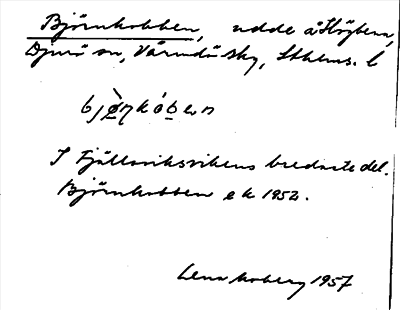 Björnkobben, udde å Högbern,
Djurö sn, Värmdö skg, Sthlms. l
I Fjällsviksvikens bredaste del.
Björnkobben ek 1952.
Lena Moberg 1957